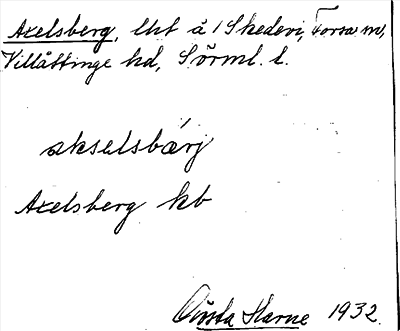 Axelsberg, lht å 1 Skedevi, Forsa sn,
Villåttinge hd, Sörml. l.
akselsbárj
Axelsberg kb
Gösta Harne 1932.